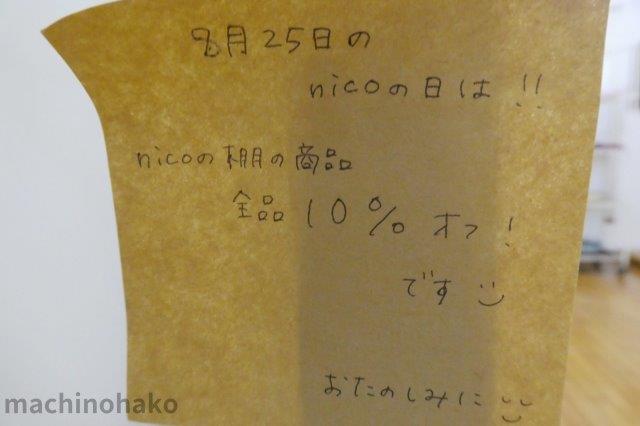 8月25日の
nicoの日は!!
nicoの棚の商品
全品10%オフ!
です
おたのしみに
machinohako